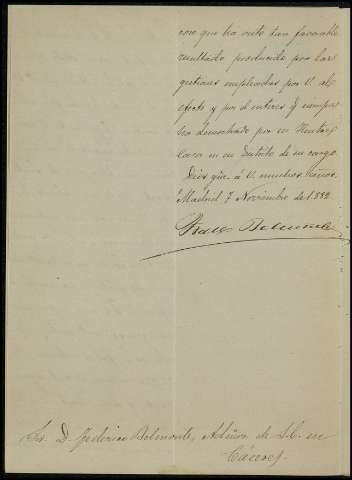 con que ha visto tan favorable
resultado producido por las
gestiones empleadas por V. al
efecto y por el interes q. siempre
ha demostrado por su
en su Distrito de su cargo.
Dios gūe. á V. muchos años.
Madrid 7 Noviembre de 1882.
Belmonte
Sr. D. Federico Belmonte, Admor. de en
Cáceres.